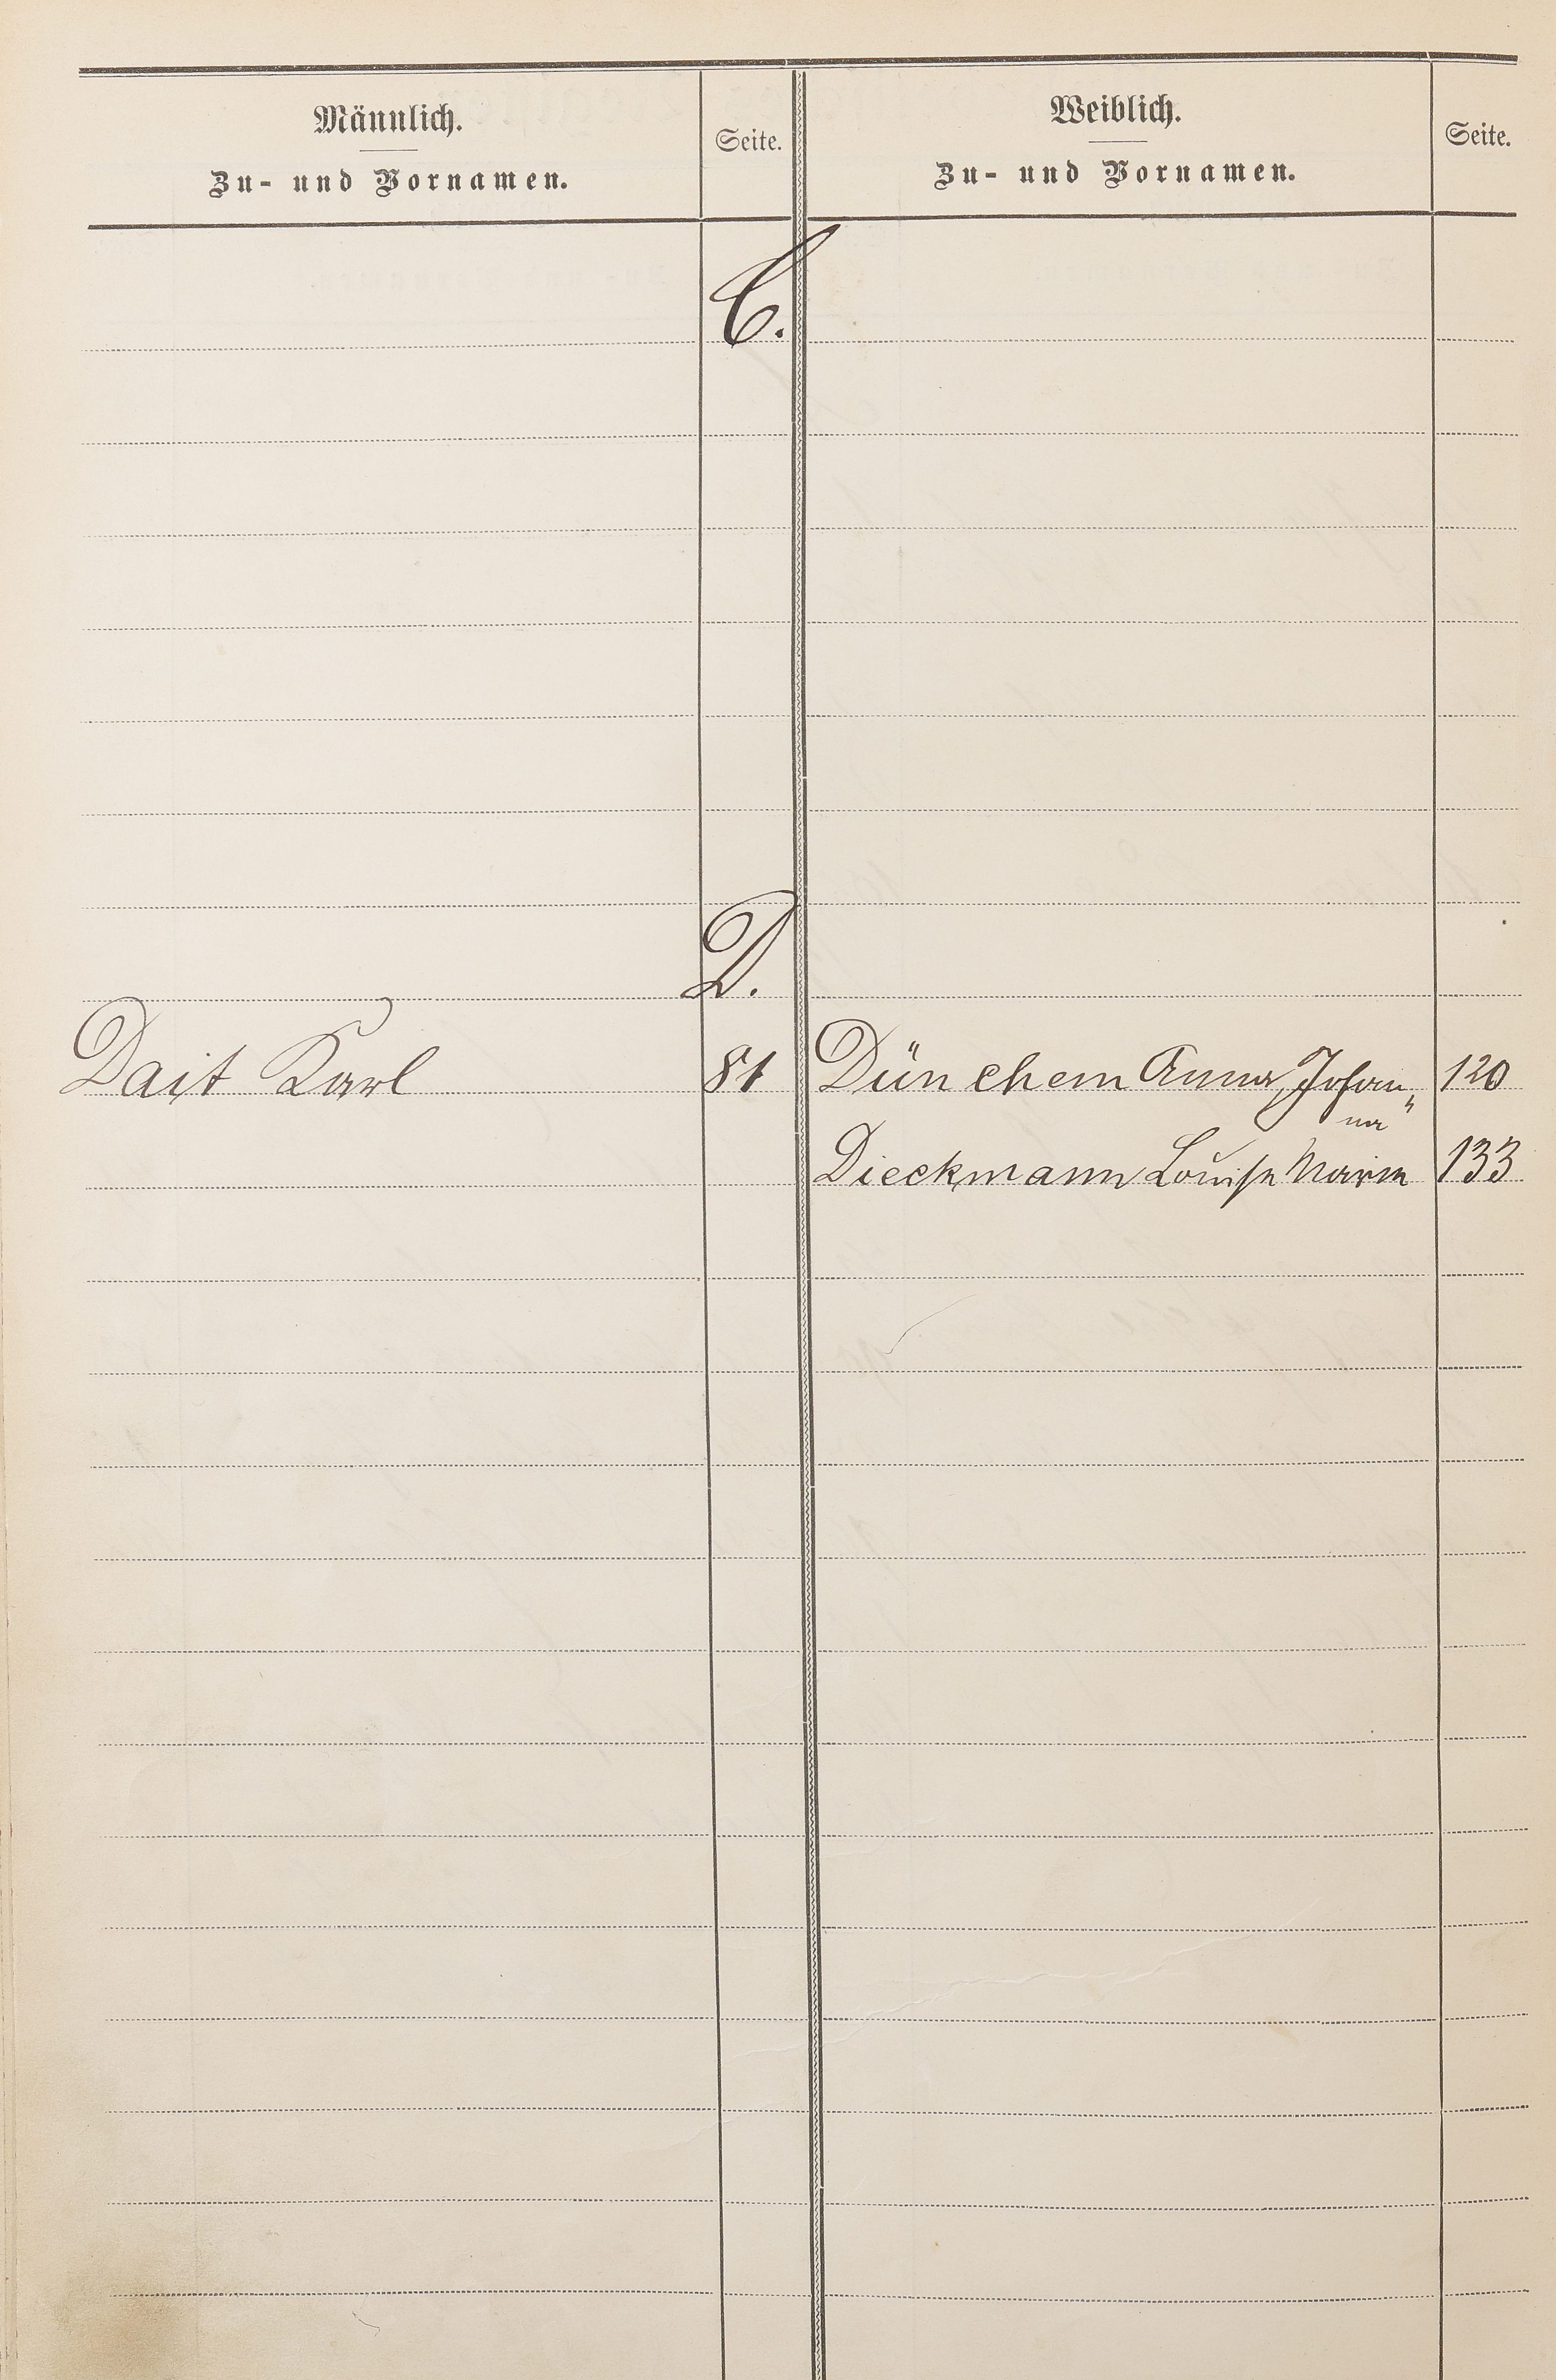 Männlich.
Zu- und Vornamen.
Seite.
Weiblich.
Zu- und Vornamen.
Seite.
C.
D.
Dait Karl 81 Dünchem Anna, Johan„ 120
na"
Dieckmann Louise Marie 133